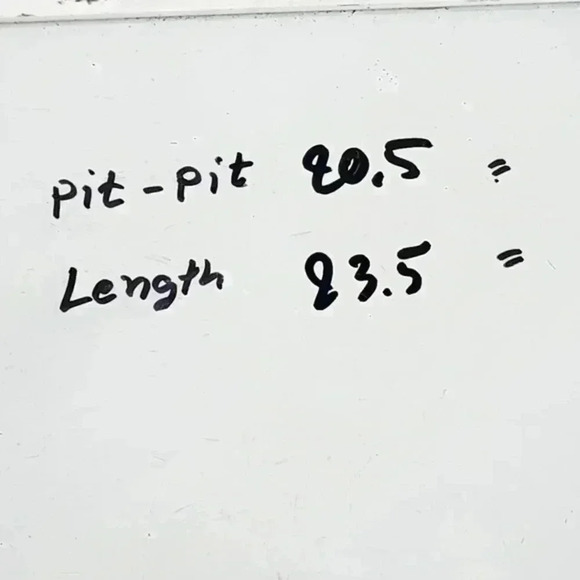 Pit - Pit 20.5 "
Length 23.5 "